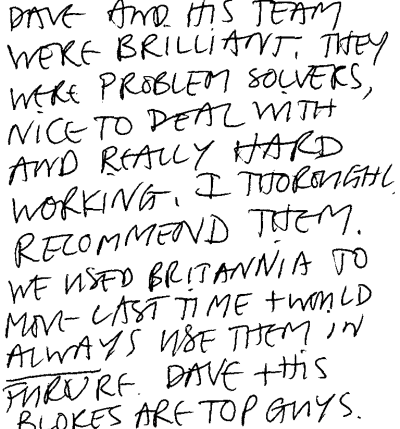 DAVE AND HIS TEAM
WERE BRILLIANT. THEY
WERE PROBLEM SOLVERS,
NICE TO DEAL WITH
AND REALLY HARD
WORKING. I THOROUGHL
RECOMMEND THEM.
WE USED BRITANNIA TO
MOVE LAST TIME + WOULD
ALWAYS USE THEM IN
FUTURE. DAVE + HIS
BLOKES ARE TOP GUYS.